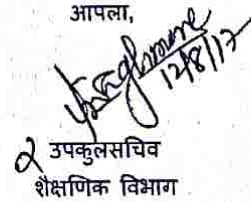 आपला,
12/8/17
उपकुलसचिव
शैक्षणिक विभाग